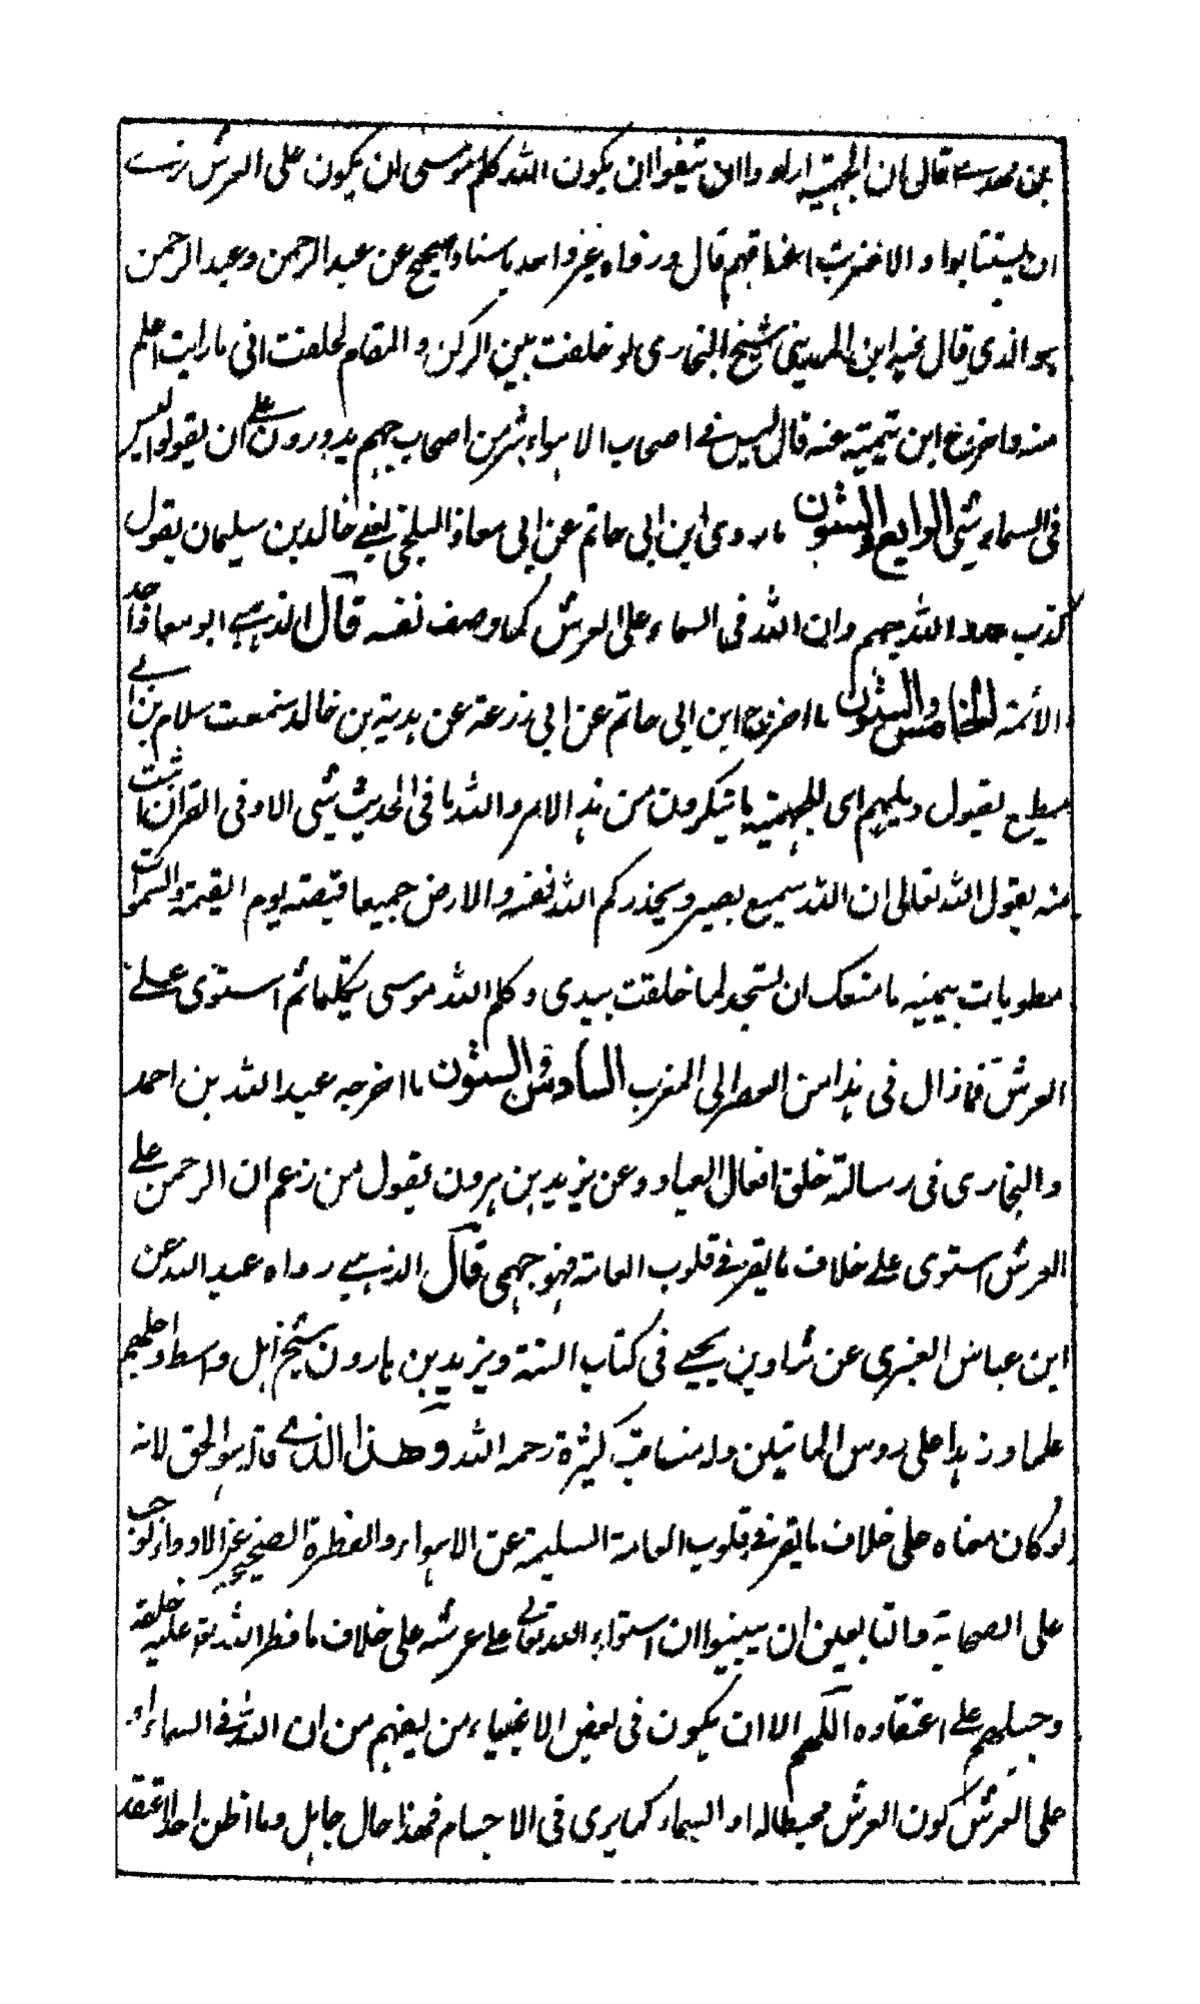 بن مهدي قال ان الجهمية ارادوا ان ينفوا ان يكون الله كلم موسى ان يكون على العرش نرى
ان يستتابوا والا ضربت اعناقهم قال ورواه غير واحد باسناد صحيح عن عبد الرحمن وعبد الرحمن
هو الذي قال فيه ابن المديني شيخ البخاري لو حلفت بين الركن والمقام لحلفت اني ما رايت اعلم
منه واخرج ابن تيمية عنه قال ليس في اصحاب الاهواء شر من اصحاب جهم يدورون على ان يقولوا ليس
في السماء شي الرابع والستون ما روى ابن ابي حاتم عن ابي معاذ البلخي يعني خالد بن سليمان يقول
كذب عدو الله جهم وان الله في السماء على العرش كما وصف نفسه قال الذهبي ابو معاذ احد
الائمة الخامس والستون ما اخرج ابن ابي حاتم عن ابي زرعة عن هدبة بن خالد سمعت سلام بن ابي
مطيع يقول ويلهم اي الجهمية ما ينكرون من هذا الامر والله ما في الحديث شي الا وفي القران اثبت
منه يقول الله تعالى ان الله سميع بصير ويحذركم الله نفسه والارض جميعا قبضته يوم القيمة والسموات
مطويات بيمينه ما منعك ان تسجد لما خلقت بيدي وكلم الله موسى تكليما ثم استوى على
العرش فما زال في هذا من العصر الى المغرب السادس والستون ما اخرجه عبد الله بن احمد
والبخاري في رسالة خلق افعال العباد وعن يزيد بن هرون يقول من زعم ان الرحمن على
العرش استوى على خلاف ما يقر في قلوب العامة فهو جهمي قال الذهبي رواه عبد الله عن
ابن عباس العنبري عن شاذ بن يحيى في كتاب السنة ويزيد بن هارون شيخ اهل واسط واعلمهم
علما وزهدا على روس المائتين وله مناقب كثيرة رحمه الله وهذا الذي قاله هو الحق لانه
لو كان معناه على خلاف ما يقر في قلوب العامة السليمة عن الاهواء والفطرة الصحيحة عن الادواء لوجب
على الصحابة والتابعين ان يبينوا ان استواء الله تعالى على عرشه على خلاف ما فطر الله عليه خلقه
وجبلهم على اعتقاده اللهم الا ان يكون في بعض الاغبياء من يفهم من ان الله في السماء او
على العرش كون العرش محيطا له او السماء كما يرى في الاجسام فهذا حال جاهل وما اظن احدا اعتقد